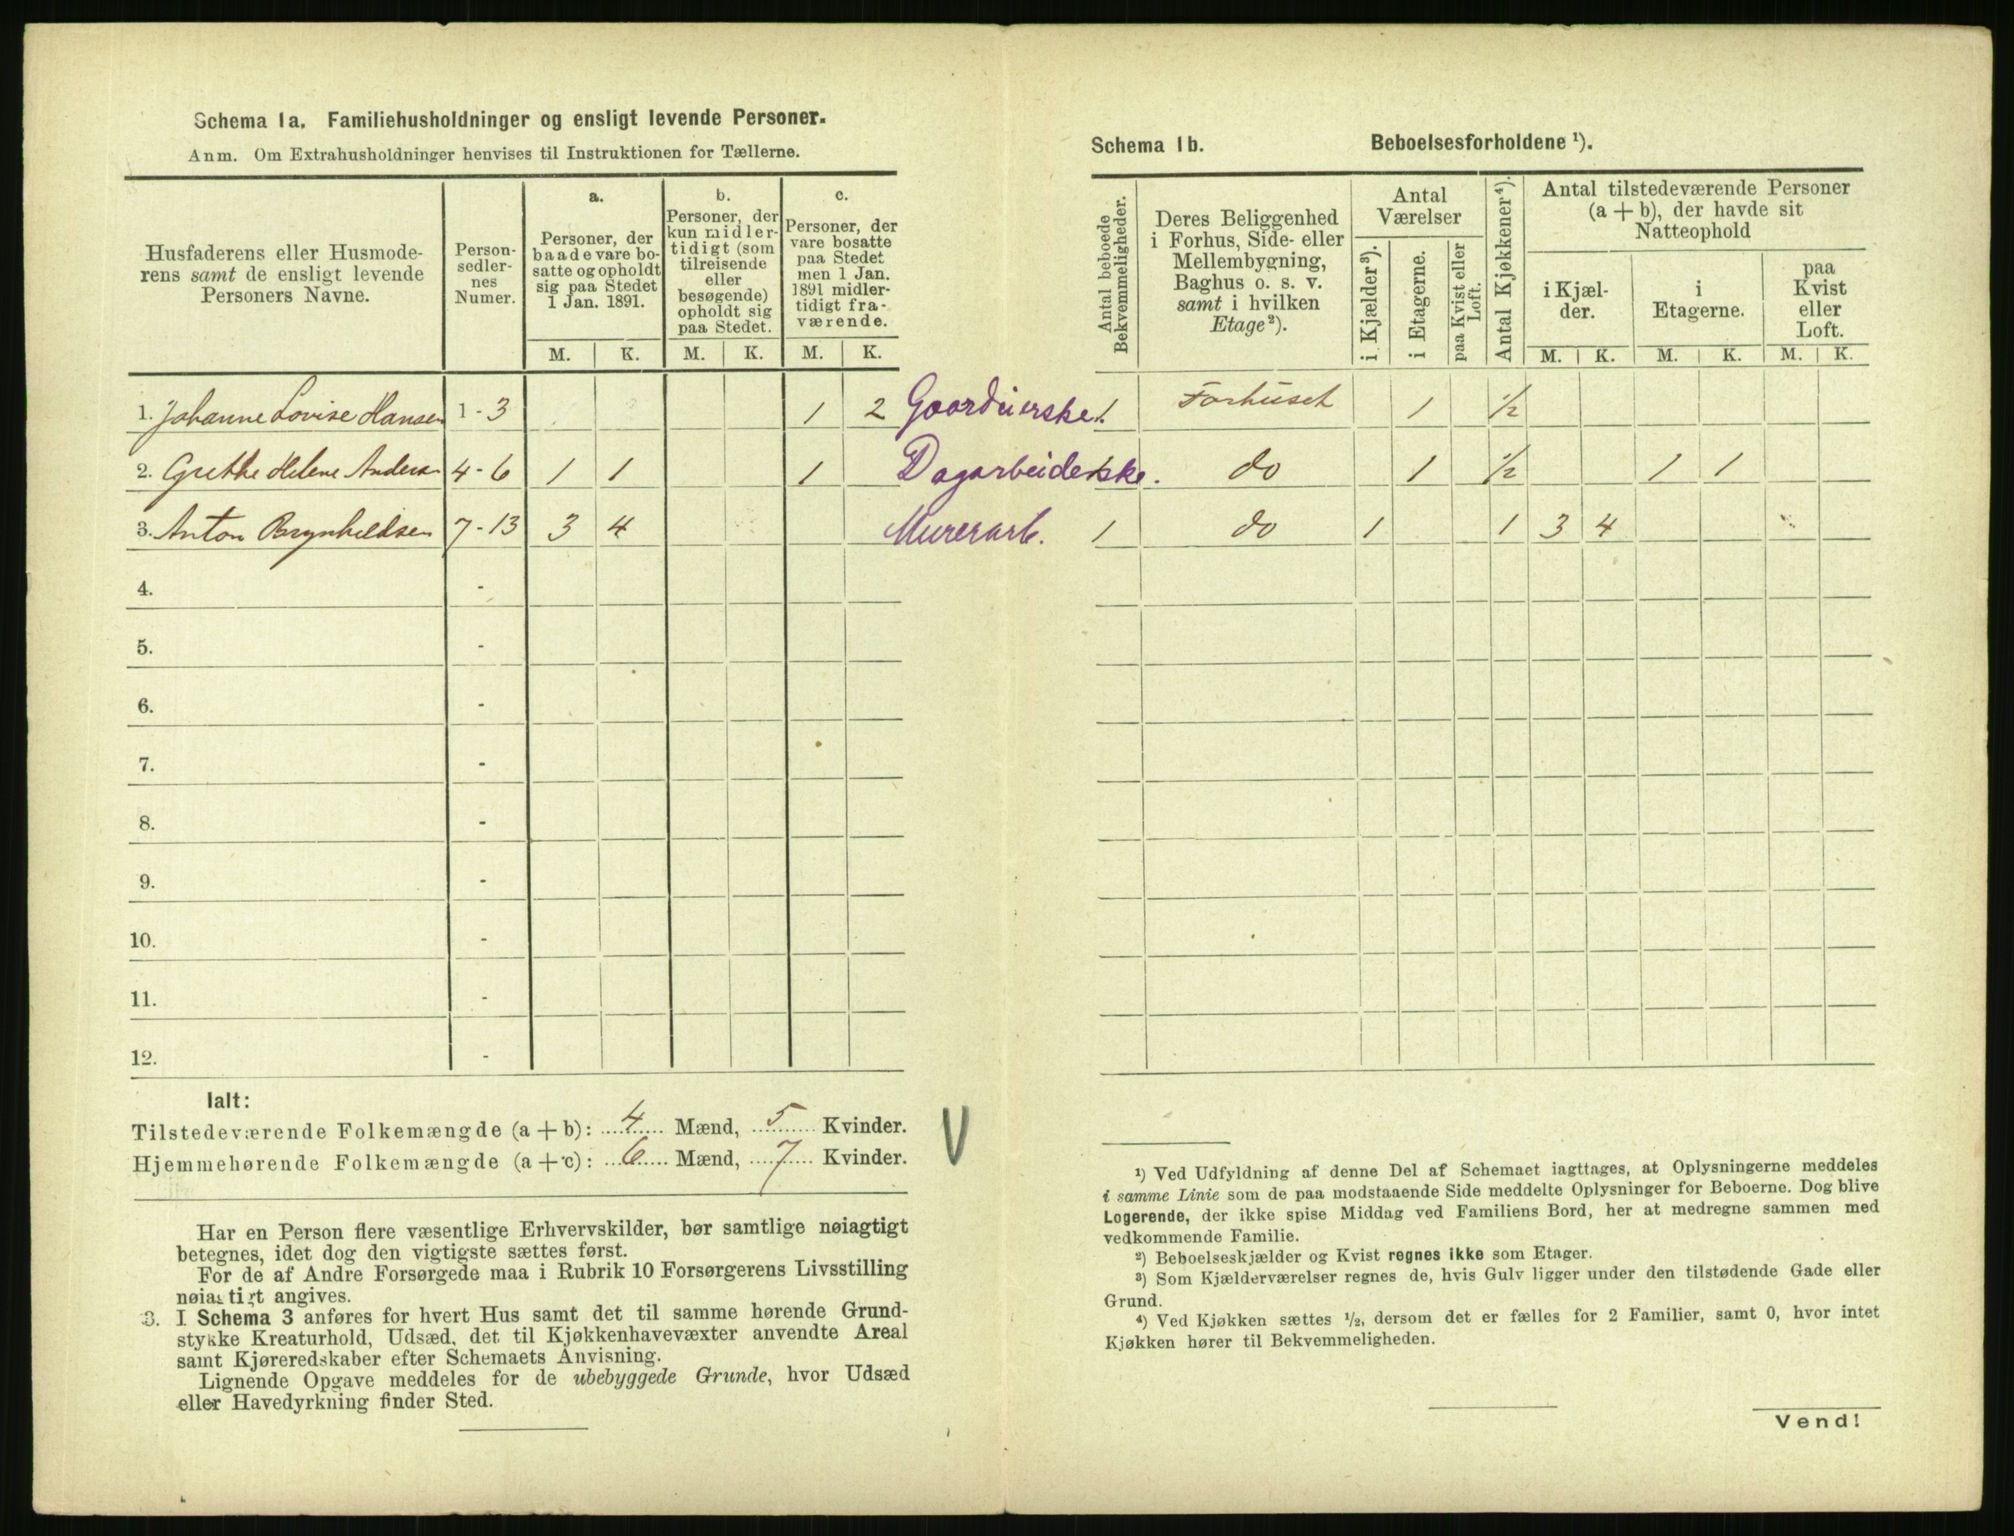 Schema 1a. Familiehusholdninger og ensligt levende Personer.
Anm. Om Extrahusholdninger henvises til Instruktionen for Tællerne.
Husfaderens eller Husmoderens samt de ensligt levende Personers Navne.
Personsedlernes Numer.
a. Personer, der baade vare bosatte og opholdt sig paa Stedet 1 Jan. 1891.
b. Personer, der kun midlertidigt (som tilreisende eller besøgende) opholdt sig paa Stedet.
c. Personer, der vare bosatte paa Stedet men 1 Jan. 1891 midlertidigt fraværende.
M. K. M. K. M. K.
1. Johanne Lovise Hansen 1-3 1 2
2. Grethe Helene Anders 4-6 1 1 1
3. Anton Brynhildsen 7-13 3 4
4. -
5. -
6. -
7. -
8. -
9. -
10. -
11. -
12. -
Ialt:
Tilstedeværende Folkemængde (a + b): 4 Mænd, 5 Kvinder.
Hjemmehørende Folkemængde (a + c): 6 Mænd, 7 Kvinder.
V
Har en Person flere væsentlige Erhvervskilder, bør samtlige nøiagtigt
betegnes, idet dog den vigtigste sættes først.
For de af Andre Forsørgede maa i Rubrik 10 Forsørgerens Livsstilling
nøiagtigt angives.
3. I Schema 3 anføres for hvert Hus samt det til samme hørende Grund-
stykke Kreaturhold, Udsæd, det til Kjøkkenhavevæxter anvendte Areal
samt Kjøreredskaber efter Schemaets Anvisning.
Lignende Opgave meddeles for de ubebyggede Grunde, hvor Udsæd
eller Havedyrkning finder Sted.
Schema 1b. Beboelsesforholdene ¹).
Antal beboede Bekvemmeligheder.
Deres Beliggenhed i Forhus, Side- eller Mellembygning, Baghus o. s. v. samt i hvilken Etage ²).
Antal Værelser
i Kjælder ³).
i Etagerne.
paa Kvist eller Loft.
Antal Kjøkkener ⁴).
Antal tilstedeværende Personer (a + b), der havde sit Natteophold
i Kjælder.
i Etagerne.
paa Kvist eller Loft.
M. K. M. K. M. K.
Gaardeierske 1 Forhuset 1 ½
Dagarbeiderske. 1 do 1 ½ 1 1
Murerarb. 1 do 1 1 3 4
¹) Ved Udfyldning af denne Del af Schemaet iagttages, at Oplysningerne meddeles
i samme Linie som de paa modstaaende Side meddelte Oplysninger for Beboerne. Dog blive
Logerende, der ikke spise Middag ved Familiens Bord, her at medregne sammen med
vedkommende Familie.
²) Beboelseskjælder og Kvist regnes ikke som Etager.
³) Som Kjælderværelser regnes de, hvis Gulv ligger under den tilstødende Gade eller
Grund.
⁴) Ved Kjøkken sættes ½, dersom det er fælles for 2 Familier, samt 0, hvor intet
Kjøkken hører til Bekvemmeligheden.
Vend!